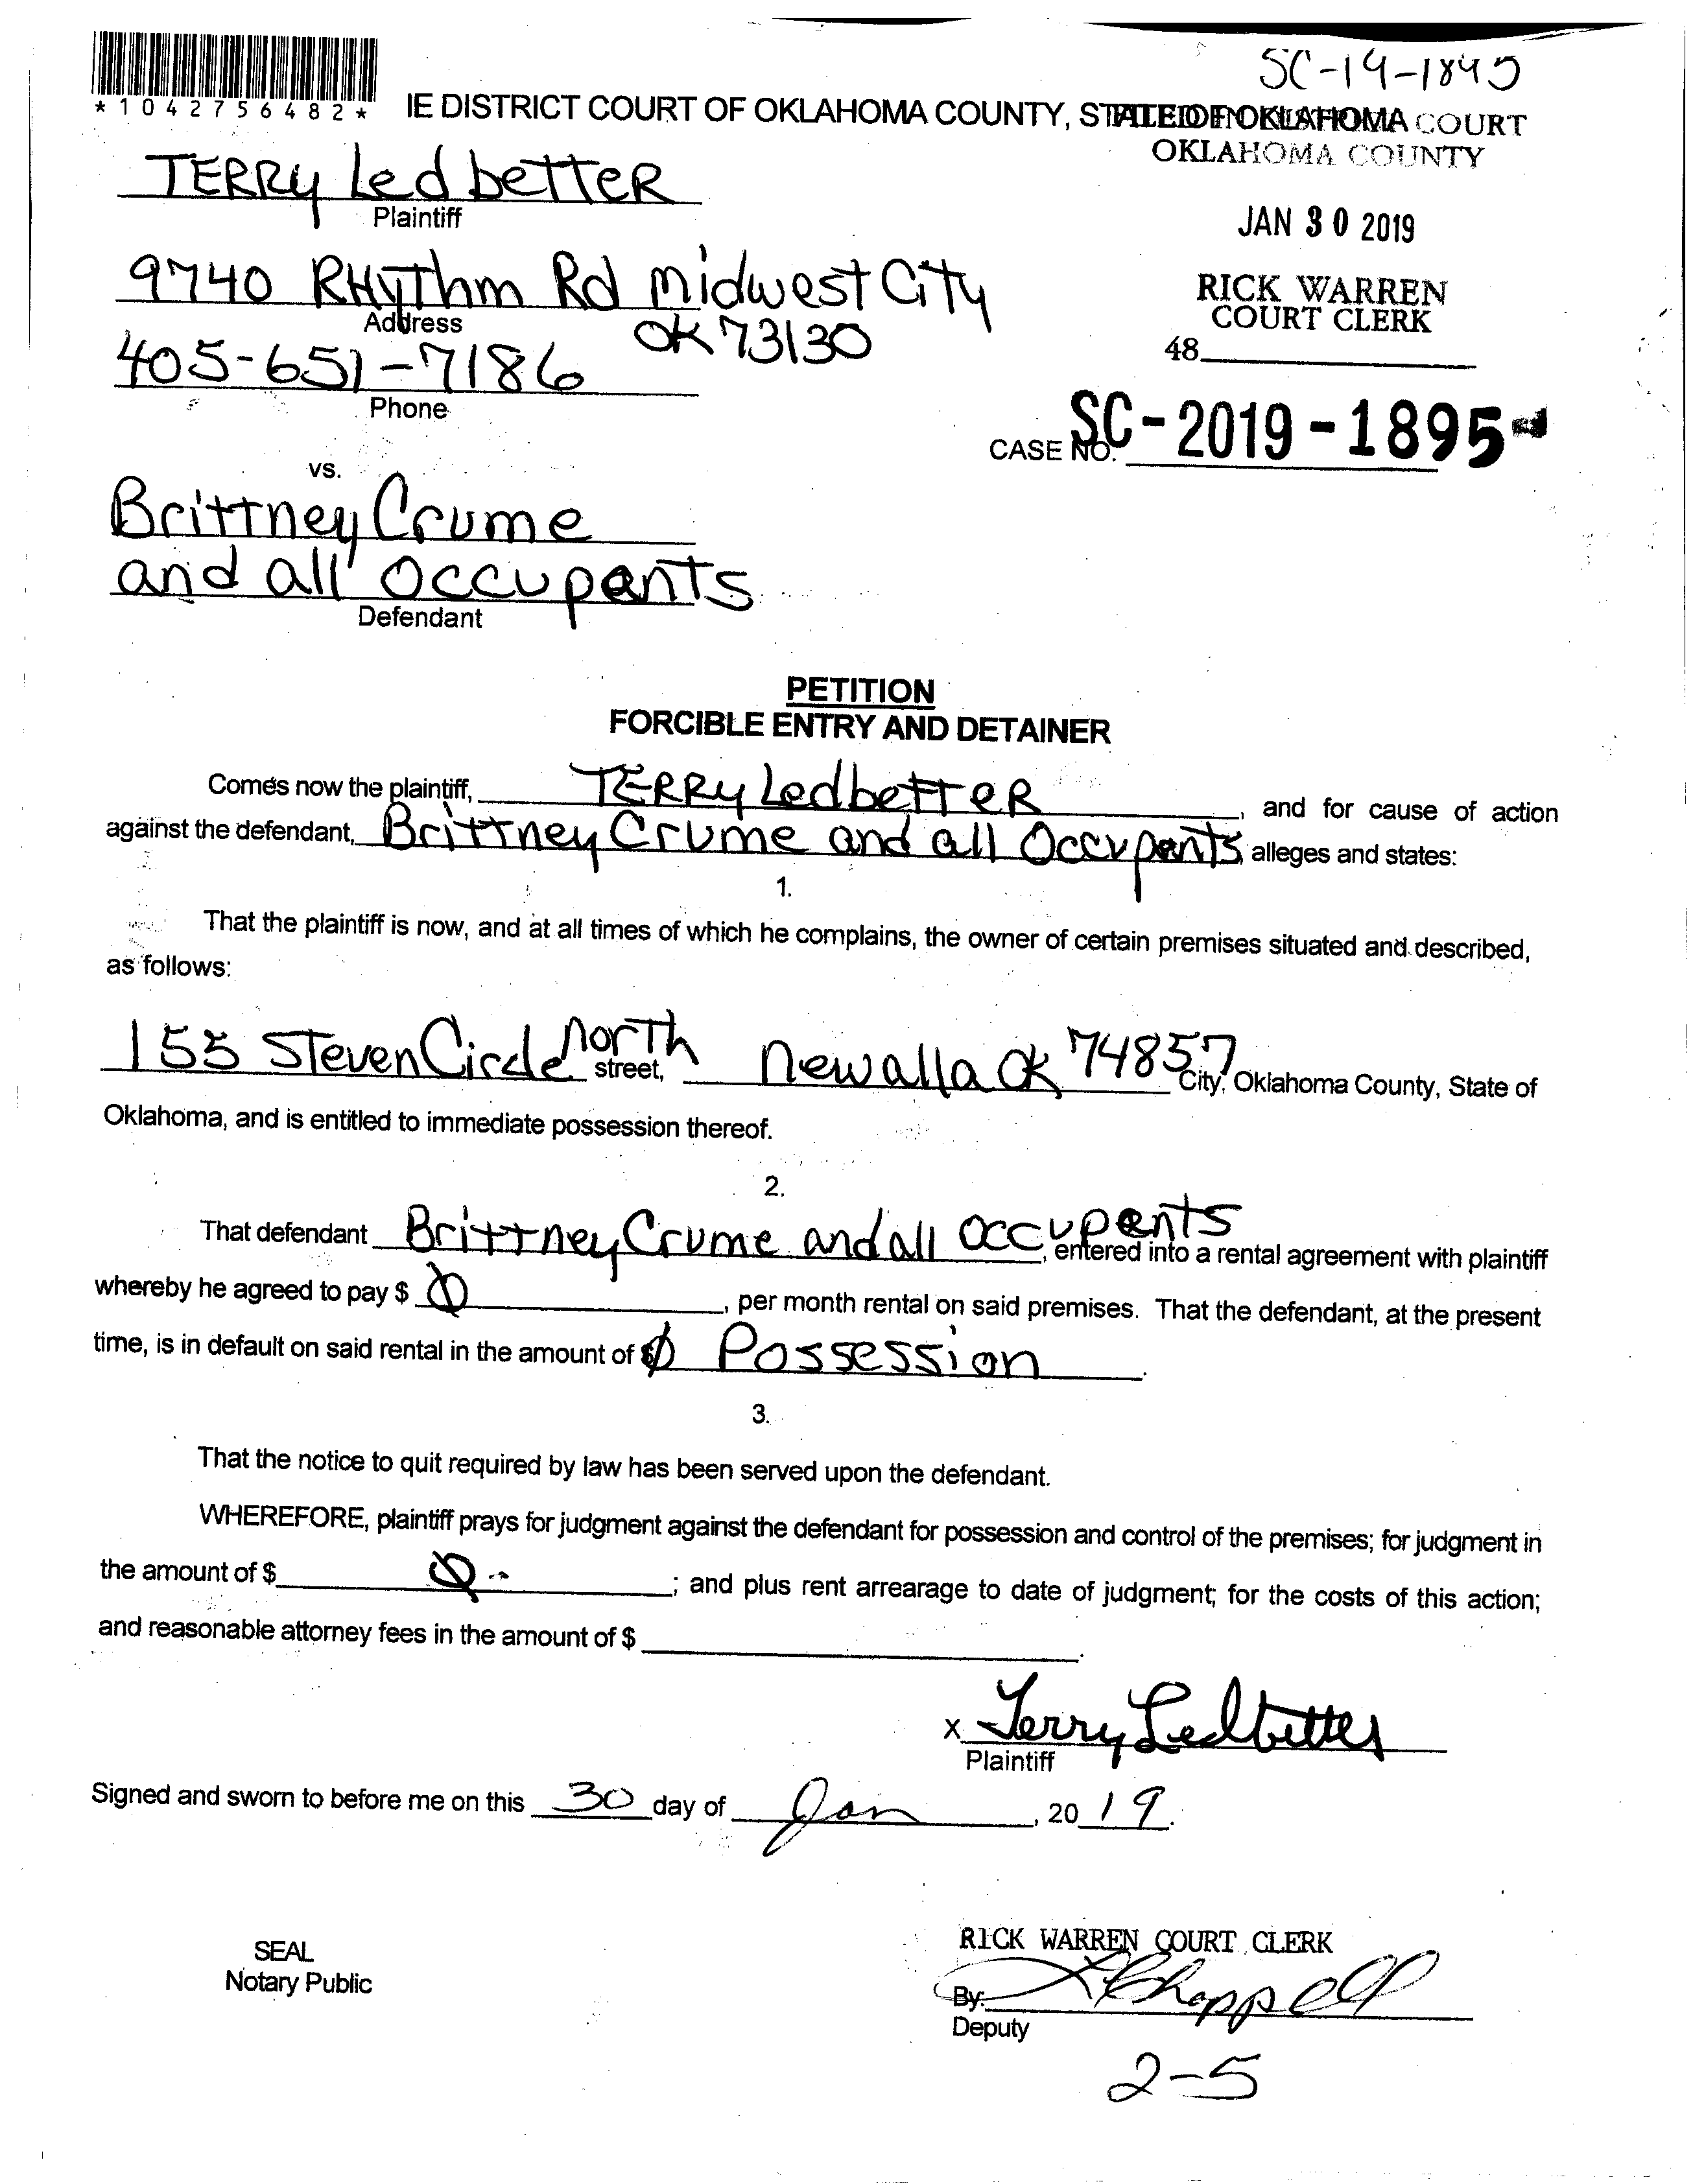 SC-19-1895
*1042756482*
IE DISTRICT COURT OF OKLAHOMA COUNTY, STATE OF OKLAHOMA
FILED IN DISTRICT COURT
OKLAHOMA COUNTY
TERRY Ledbetter
Plaintiff
JAN 30 2019
9740 RHyThm Rd midwest City
Address
OK 73130
RICK WARREN
COURT CLERK
48
405-651-7186
Phone
CASE NO. SC-2019-1895
vs.
Brittney Crume
and all Occupants
Defendant
PETITION
FORCIBLE ENTRY AND DETAINER
Comes now the plaintiff, TERRY Ledbetter, and for cause of action
against the defendant, Brittney Crume and all Occupants, alleges and states:
1.
That the plaintiff is now, and at all times of which he complains, the owner of certain premises situated and described,
as follows:
155 Steven Circle north street, newalla OK 74857 City, Oklahoma County, State of
Oklahoma, and is entitled to immediate possession thereof.
2.
That defendant Brittney Crume and all occupants, entered into a rental agreement with plaintiff
whereby he agreed to pay $ Ø, per month rental on said premises. That the defendant, at the present
time, is in default on said rental in the amount of $ Ø Possession.
3.
That the notice to quit required by law has been served upon the defendant.
WHEREFORE, plaintiff prays for judgment against the defendant for possession and control of the premises; for judgment in
the amount of $ Ø; and plus rent arrearage to date of judgment; for the costs of this action;
and reasonable attorney fees in the amount of $ .
X Terry Ledbetter
Plaintiff
Signed and sworn to before me on this 30 day of Jan, 20 19.
SEAL
Notary Public
RICK WARREN COURT CLERK
By: Chappell
Deputy
2-5